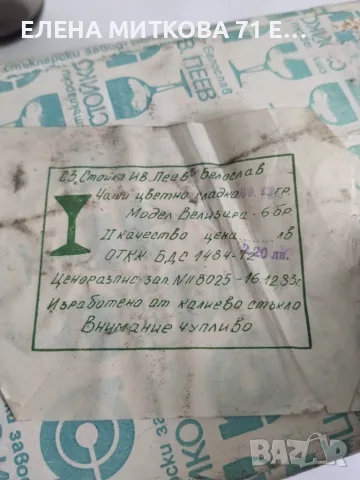 ЕЛЕНА МИТКОВА 71 Е...
СТОЙКО
ПЕЕВ
Белослав
СЗ „Стойко Ив. Пеев" Белослав
Чаши цветно сладко гр.
Модел Велизира - 6 бр
II качество цена 2,20 лв.
ОТКК БДС 1484-72
Ценоразпис-зап. № 8025-16.12.83г.
Изработено от калиево стъкло
Внимание чупливо
BAZAR
.bg